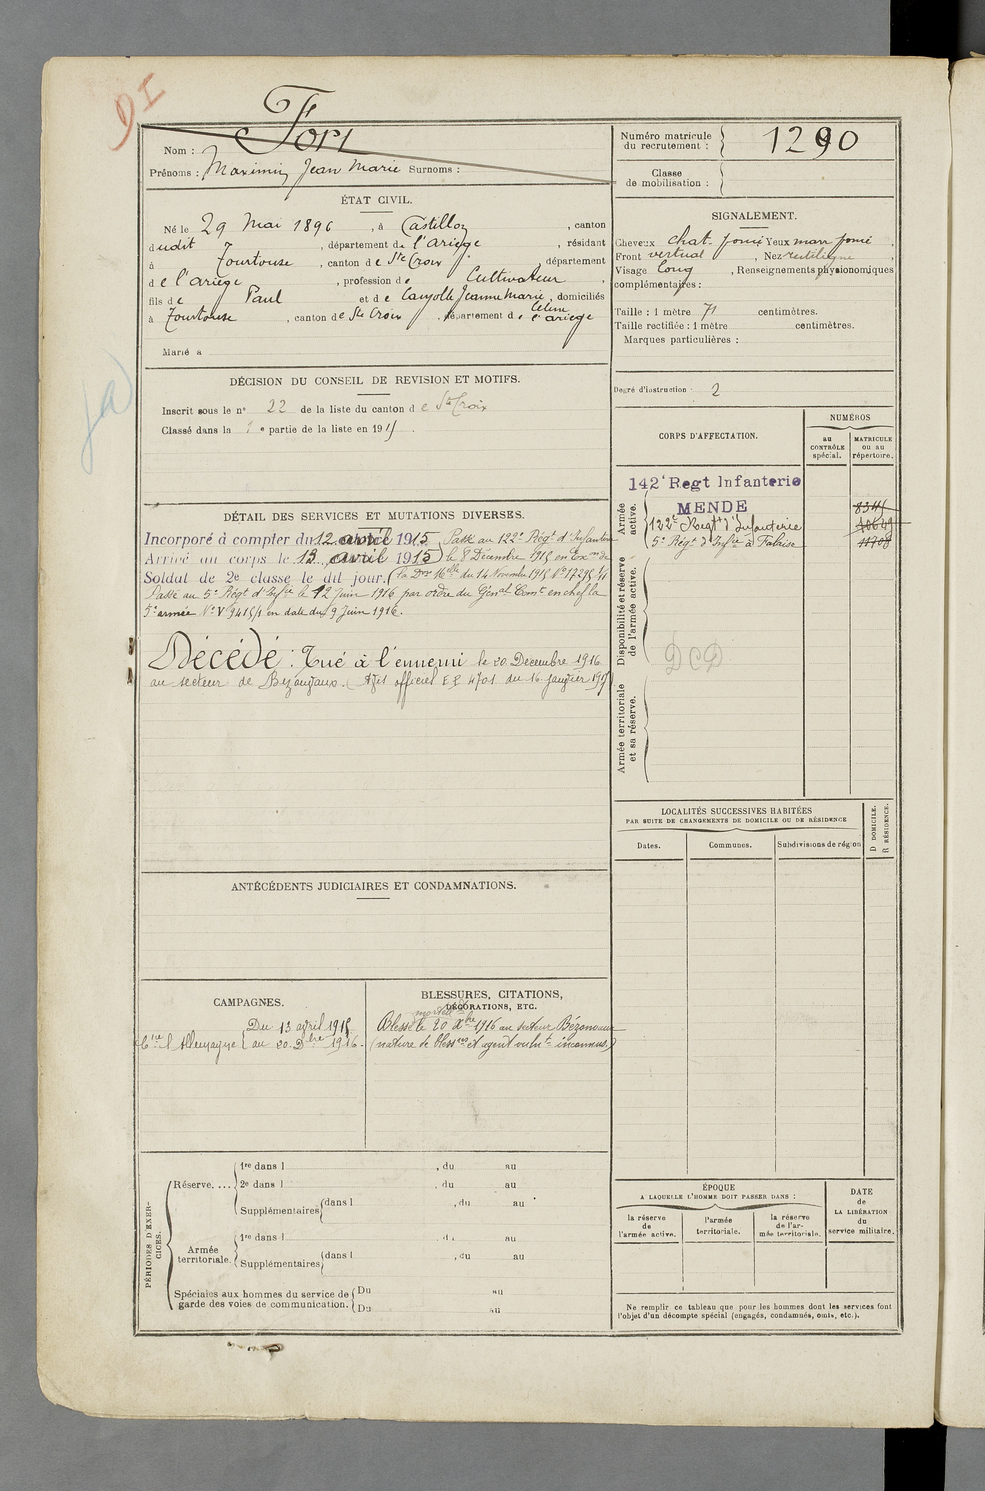 DI
Nom : Fort
Prénoms : Maximin Jean Marie Surnoms :
Numéro matricule du recrutement : 1290
Classe de mobilisation :
ÉTAT CIVIL.
Né le 29 Mai 1896, à Castillon, canton
dudit, département de l'Ariège, résidant
à Tourtouse, canton de Ste Croix, département
de l'ariège, profession de Cultivateur,
fils de Paul et de Jeanne Marie, domiciliés
Céline
à Tourtouse, canton de Ste Croix, département de l'ariège
Marié à
SIGNALEMENT.
Cheveux chat. foncé Yeux marr foncé,
Front vertical, Nez rectiligne,
Visage long, Renseignements physionomiques
complémentaires :
Taille : 1 mètre 71 centimètres.
Taille rectifiée : 1 mètre centimètres.
Marques particulières :
Degré d'instruction : 2
DÉCISION DU CONSEIL DE REVISION ET MOTIFS.
Inscrit sous le n° 22 de la liste du canton de Ste Croix
Classé dans la 1e partie de la liste en 1915.
CORPS D'AFFECTATION.
NUMÉROS
au CONTRÔLE spécial.
MATRICULE ou au répertoire.
Armée active.
142e Regt Infanterie
MENDE
122e Regt d'Infanterie
5e Régt d'Infie à Falaise
Disponibilité et réserve de l'armée active.
DCD
Armée territoriale et sa réserve.
DÉTAIL DES SERVICES ET MUTATIONS DIVERSES.
Incorporé à compter du 12 avril 1915, Passé au 122e Régt d'Infanterie
Arrivé au corps le 13 avril 1915) le 8 Décembre 1915 en Exon de
Soldat de 2e classe le dit jour. du 14 Novembre 1915 No 17295
Passé au 5e Régt d'Infie le 12 Juin 1916 par ordre du Génal Comt en chef la
5e armée No V 9415/1 en date du 9 Juin 1916.
Décédé : Tué à l'ennemi le 20 Décembre 1916
au secteur de Bezonvaux. (Avis officiel 4701 du 16 janvier 1917)
LOCALITÉS SUCCESSIVES HABITÉES
PAR SUITE DE CHANGEMENTS DE DOMICILE OU DE RÉSIDENCE
Dates.
Communes.
Subdivisions de région
D DOMICILE.
R RÉSIDENCE.
ANTÉCÉDENTS JUDICIAIRES ET CONDAMNATIONS.
CAMPAGNES.
Ctre l'Allemagne { Du 13 avril 1915
au 20 Dbre 1916.
BLESSURES, CITATIONS,
DÉCORATIONS, ETC.
Blessé le 20 Xbre 1916 au secteur Bézonvaux
(nature de blessres et agent vulnt inconnus)
PÉRIODES D'EXERCICES.
Réserve....
1re dans l , du au
2e dans l , du au
Supplémentaires dans l , du au
Armée territoriale.
1re dans l , du au
Supplémentaires dans l , du au
Spéciales aux hommes du service de garde des voies de communication.
Du au
Du au
ÉPOQUE
A LAQUELLE L'HOMME DOIT PASSER DANS :
la réserve de l'armée active.
l'armée territoriale.
la réserve de l'armée territoriale.
DATE de LA LIBÉRATION du service militaire.
Ne remplir ce tableau que pour les hommes dont les services font
l'objet d'un décompte spécial (engagés, condamnés, omis, etc.).